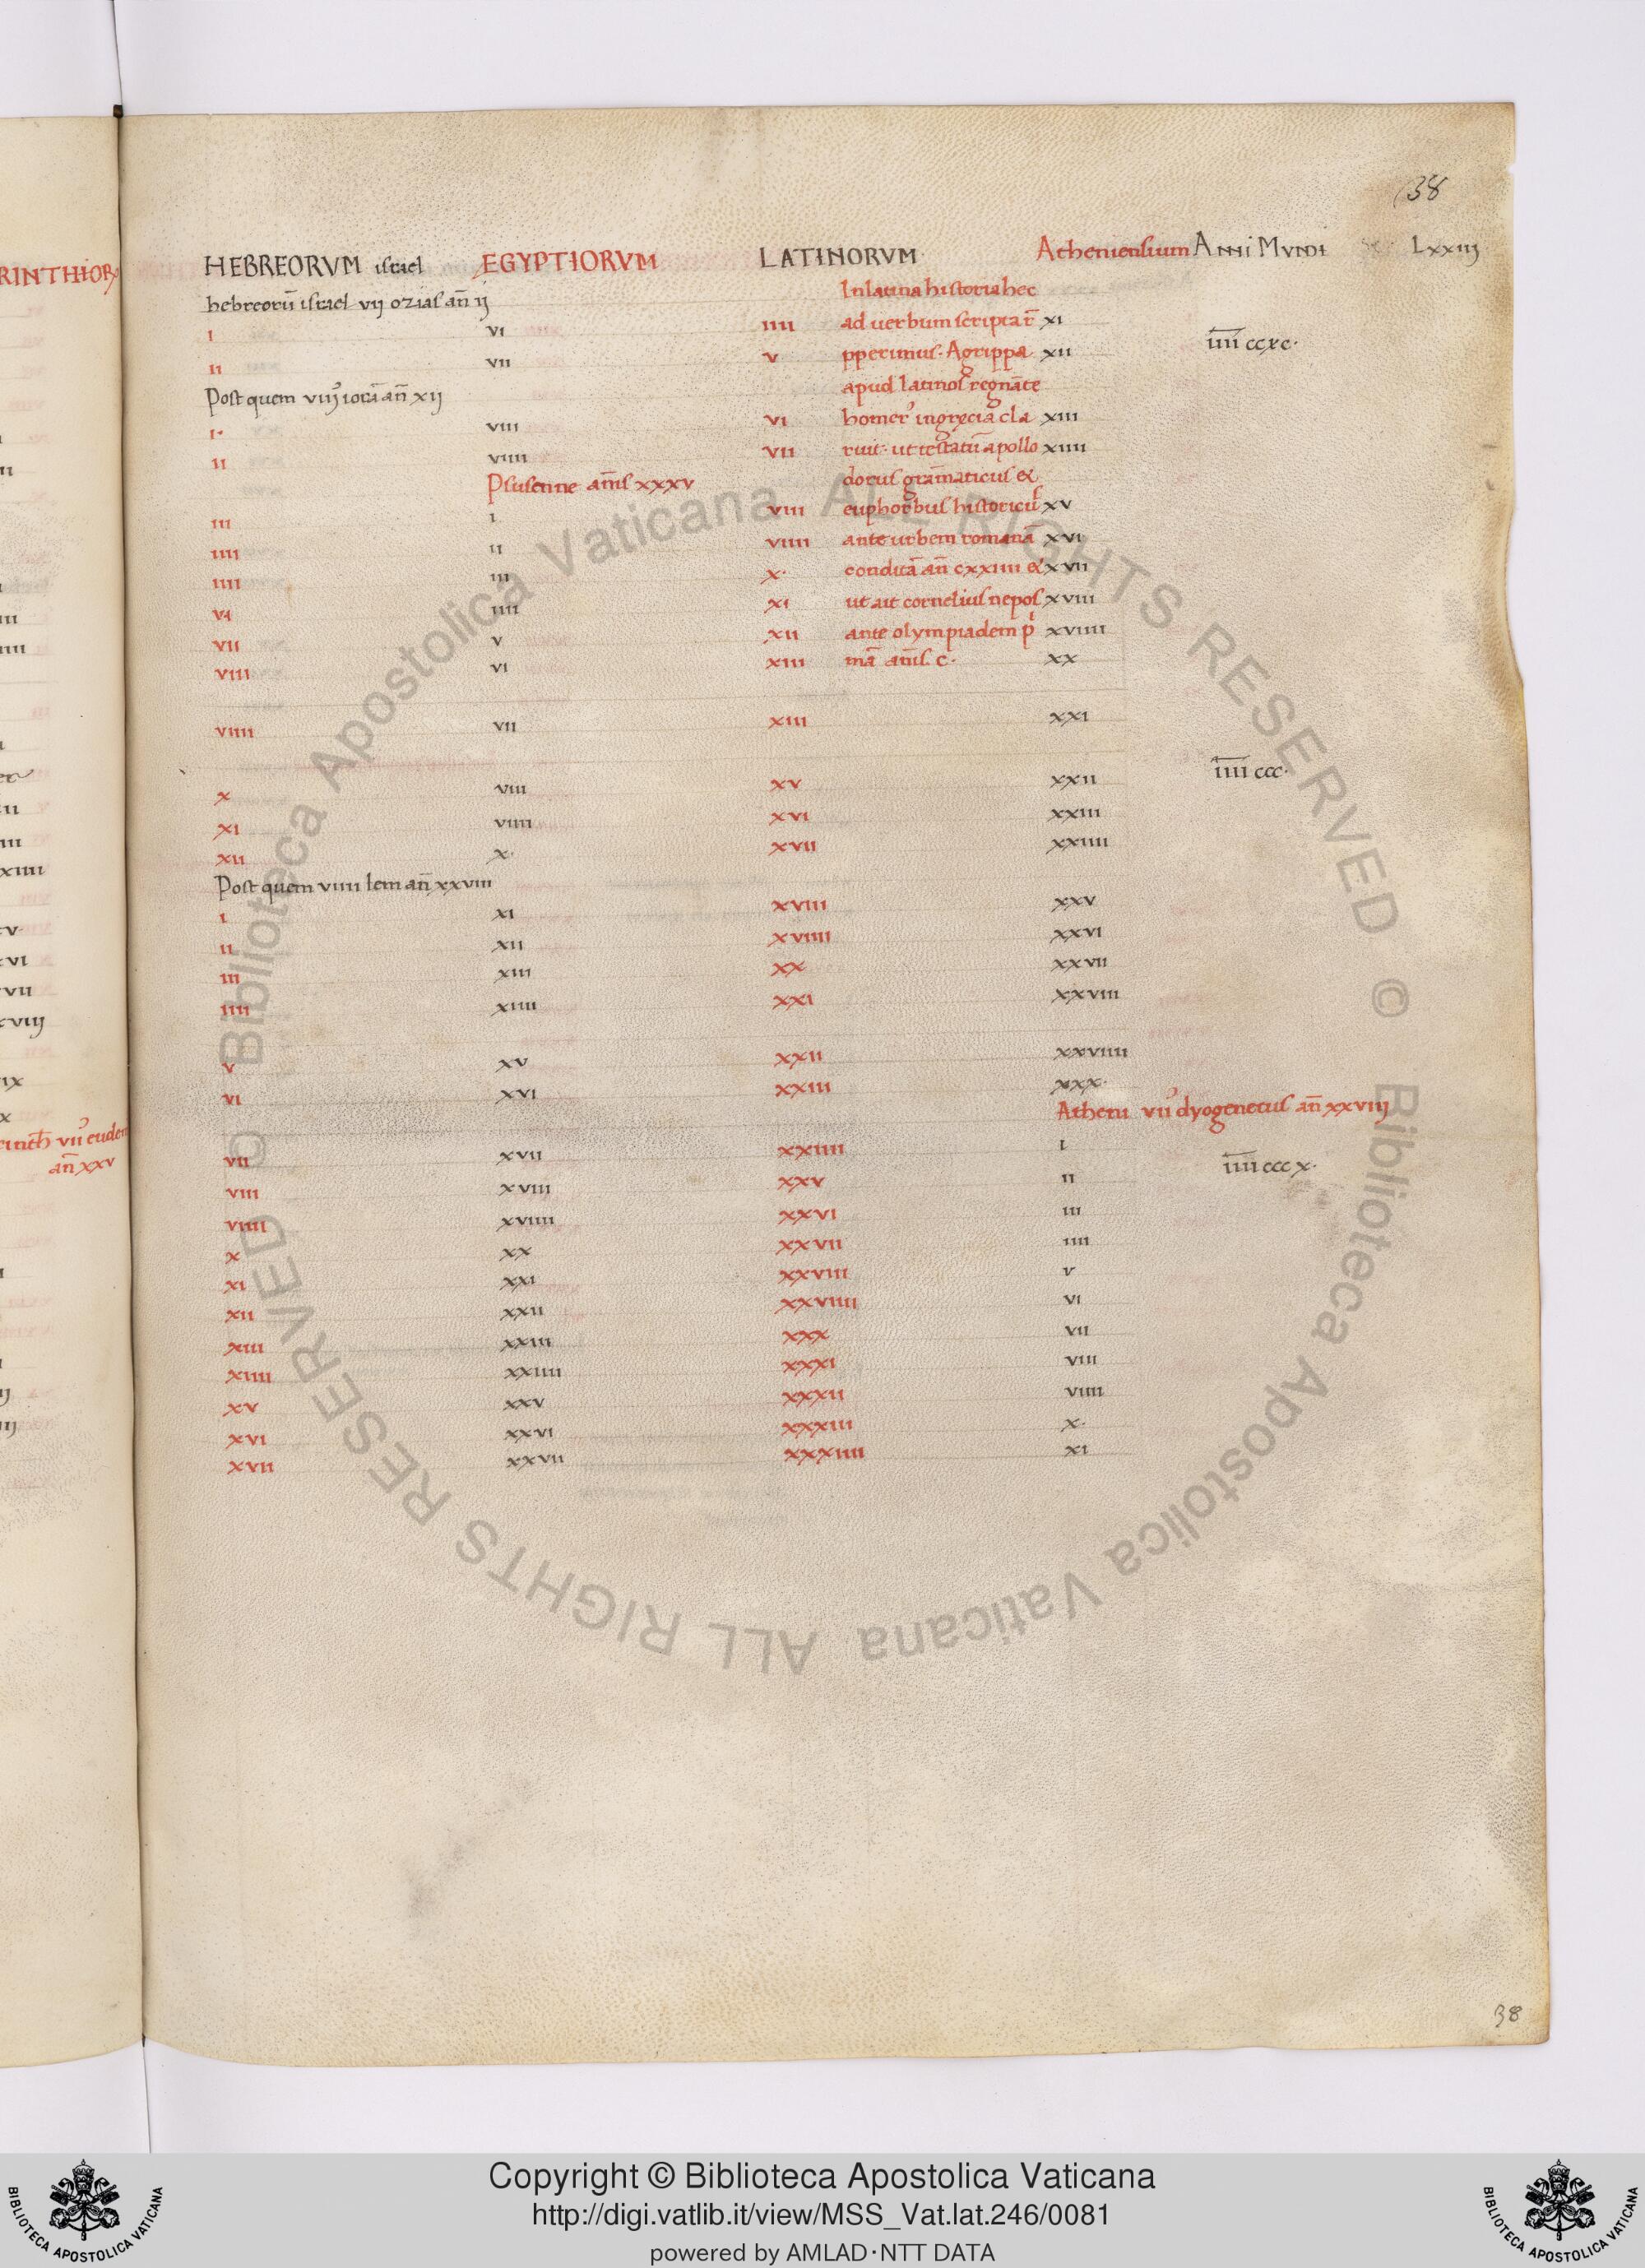 38
RINTHIOR
HEBREORVM israel EGYPTIORVM LATINORVM Atheniensium Anni Mundi Lxxiij
hebreorū israel vij ozias an̄ ij In latina historia hec
I VI IIII ad uerbum scripta r̄ XI
II VII V pperimus. Agrippa XII I̅I̅I̅I̅ ccxc.
Post quem viiij iorā an̄ xij apud latinos regnāte
I. VIII VI homer' in gręcia cla XIII
II VIIII VII ruit. ut testatū apollo XIIII
Psusenne annīs xxxv dorus grāmaticus &
III I VIII euphorbus historicus XV
IIII II VIIII ante urbem romanā XVI
IIII III X. conditā an̄ cxxiiii & XVII
VI IIII XI ut ait cornelius nepos XVIII
VII V XII ante olympiadem pi XVIIII
VIII VI XIII mā annīs. c. XX
VIIII VII XIII XXI
X VIII XV XXII I̅I̅I̅I̅ ccc.
XI VIIII XVI XXIII
XII X. XVII XXIIII
Post quem viiii Iem an̄ xxviii
I XI XVIII XXV
II XII XVIIII XXVI
III XIII XX XXVII
IIII XIIII XXI XXVIII
V XV XXII XXVIIII
VI XVI XXIII XXX.
Atheni vii' dyogenetus an̄ xxviij
VII XVII XXIIII I I̅I̅I̅I̅ ccc x.
VIII XVIII XXV II
VIIII XVIIII XXVI III
X XX XXVII IIII
XI XXI XXVIII V
XII XXII XXVIIII VI
XIII XXIII XXX VII
XIIII XXIIII XXXI VIII
XV XXV XXXII VIIII
XVI XXVI XXXIII X.
XVII XXVII XXXIIII XI
an̄ xxv
38
© Biblioteca Apostolica Vaticana ALL RIGHTS RESERVED
© Biblioteca Apostolica Vaticana ALL RIGHTS RESERVED
Copyright © Biblioteca Apostolica Vaticana
http://digi.vatlib.it/view/MSS_Vat.lat.246/0081
powered by AMLAD·NTT DATA
BIBLIOTECA APOSTOLICA VATICANA
BIBLIOTECA APOSTOLICA VATICANA